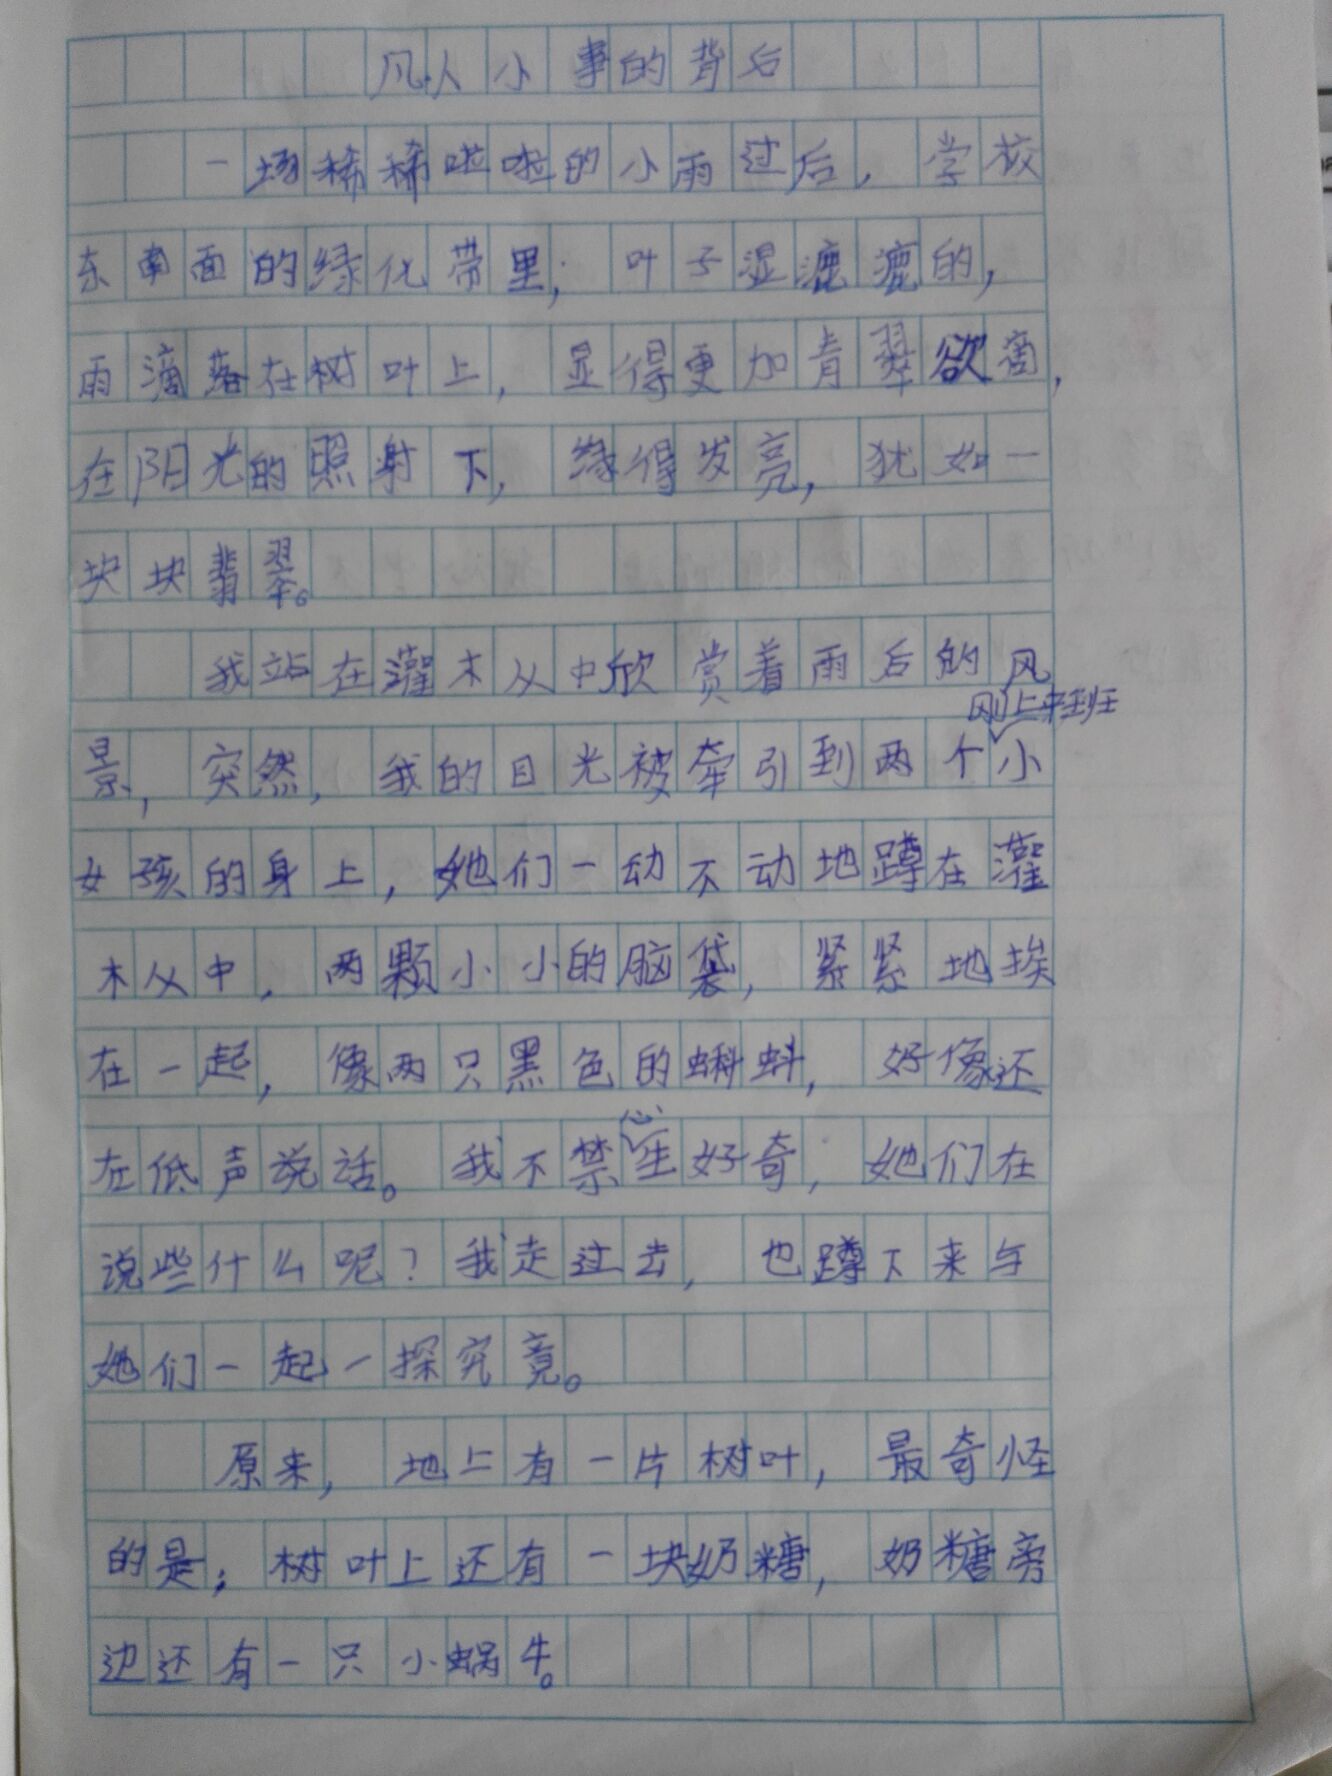 凡人小事的背后
一场稀稀啦啦的小雨过后，学校
东南面的绿化带里，叶子湿漉漉的，
雨滴落在树叶上，显得更加青翠欲滴，
在阳光的照射下，绿得发亮，犹如一
块块翡翠。
我站在灌木从中欣赏着雨后的风
刚上来班
景，突然，我的目光被牵引到两个小
女孩的身上，她们一动不动地蹲在灌
木从中，两颗小小的脑袋，紧紧地挨
在一起，像两只黑色的蝌蚪，好像还
在低声说话。我不禁心生好奇，她们在
说些什么呢？我走过去，也蹲下来与
她们一起一探究竟。
原来，地上有一片树叶，最奇怪
的是；树叶上还有一块奶糖，奶糖旁
边还有一只小蜗牛。